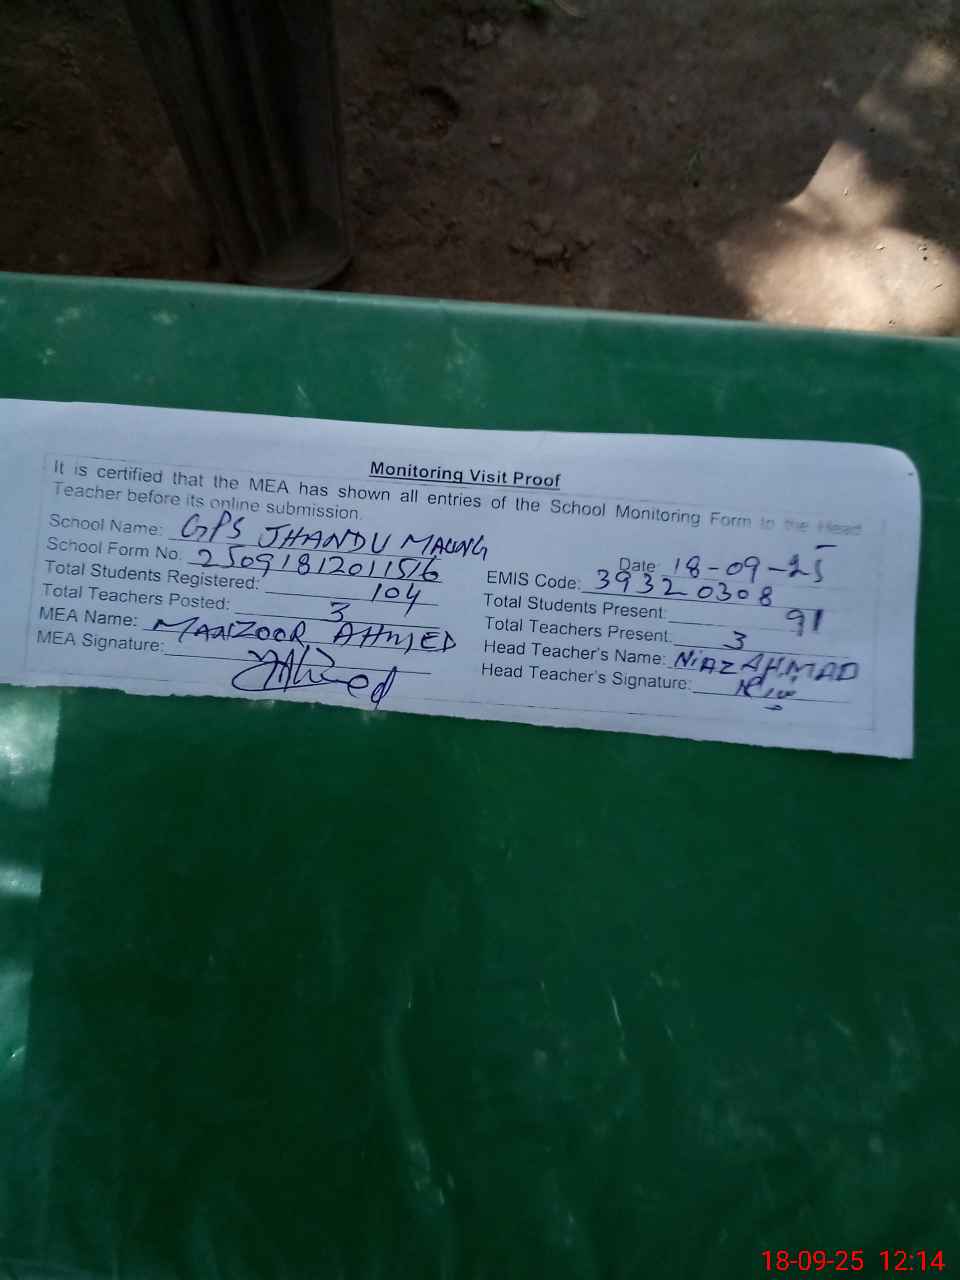 Monitoring Visit Proof
It is certified that the MEA has shown all entries of the School Monitoring Form to the Head
Teacher before its online submission.
School Name: GPS JHANDU MALING
Date: 18-09-25
School Form No. 25091812011516
EMIS Code: 39320308
Total Students Registered: 104
Total Students Present: 91
Total Teachers Posted: 3
Total Teachers Present: 3
MEA Name: MANZOOR AHMED
Head Teacher's Name: NIAZ AHMAD
MEA Signature:
Head Teacher's Signature:
18-09-25 12:14